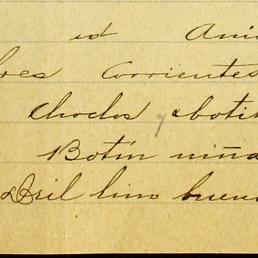 id Ani
res Corrientes
Choclos y boti
Botin niña
Dril lino buen